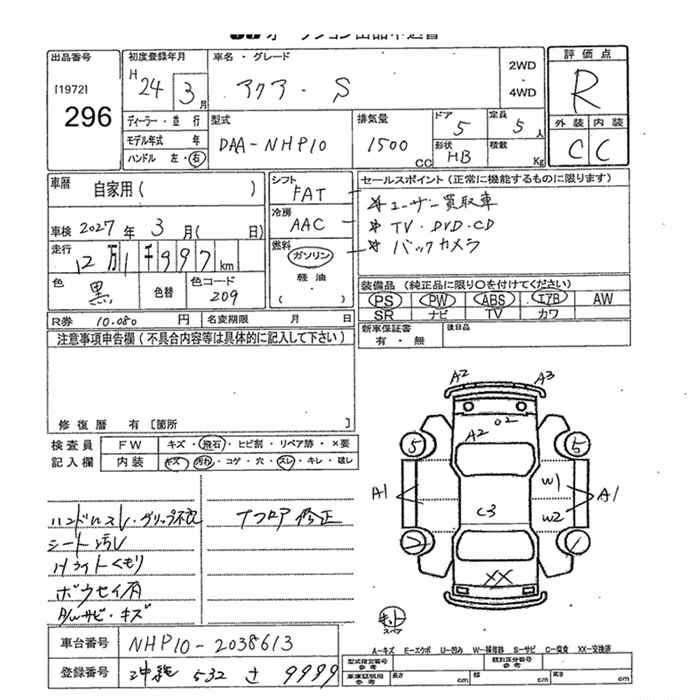 出品番号
[1972]
296
初度登録年月
H 24 年 3 月
車名・グレード
アクア・S
2WD
・
4WD
評価点
R
外装 内装
C C
ディーラー・並行
モデル年式 年
ハンドル 左・右
型式
DAA-NHP10
排気量
1500 CC
ドア
5
形状
HB
定員
5 人
積載
Kg
車暦
自家用( )
車検 2027 年 3 月( 日)
走行
12万1千997 km
色
黒
色替
色コード
209
シフト
FAT
冷房
AAC
燃料
ガソリン
軽油
( )
セールスポイント(正常に機能するものに限ります)
* ユーザー買取車
* TV・DVD・CD
* バックカメラ
装備品(純正品に限り○を付けてください)
PS PW ABS エアB AW
SR ナビ TV カワ
R券 10.080 円 名変期限 月 日
新車保証書
有・無
後日品
注意事項申告欄(不具合内容等は具体的に記入して下さい)
修復歴 有[箇所 ]
検査員
記入欄
FW キズ・飛石・ヒビ割・リペア跡・×要
内装 キズ・汚れ・コゲ・穴・スレ・キレ・破し
ハンドルスレ・グリップ不良
シート汚レ
Hライトくもり
ボウセイ有
A/wサビ・キズ
Tフロア修正
A2 A3
A2
5 5
A1 A1
W1
W2
C3
XX
スペア
車台番号 NHP10-2038613
登録番号 532 さ 9999
A-キズ E-エクボ U-凹み W-補修跡 S-サビ C-腐食 XX-交換済
型式指定番号
参考
類別区分番号
参考
車庫証明用
参考
長さ cm 幅 cm 高さ cm